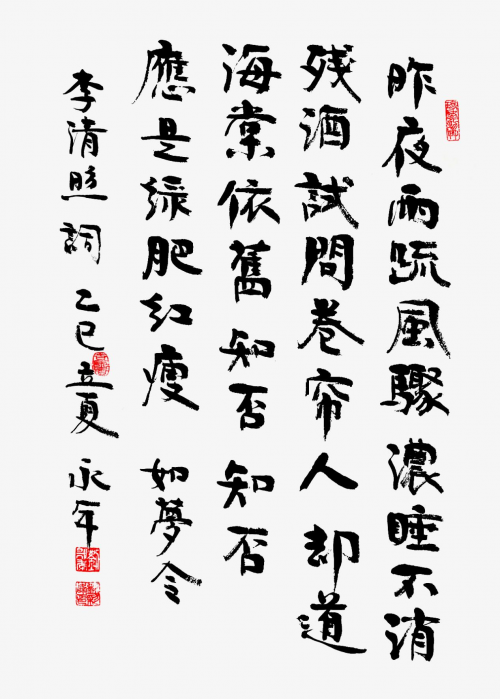 昨夜雨疏風驟濃睡不消
残酒試問卷帘人却道
海棠依舊知否知否
應是綠肥紅瘦如夢令
李清照詞乙巳立夏永年